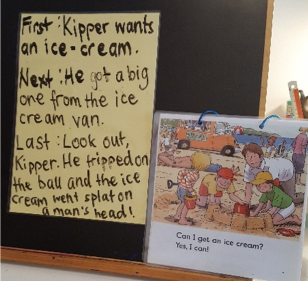 First : Kipper wants
an ice-cream.
Next : He got a big
one from the ice
cream van.
Last : Look out,
Kipper. He tripped on
the ball and the ice
cream went splat on
a man's head!
Can I get an ice cream?
Yes, I can!